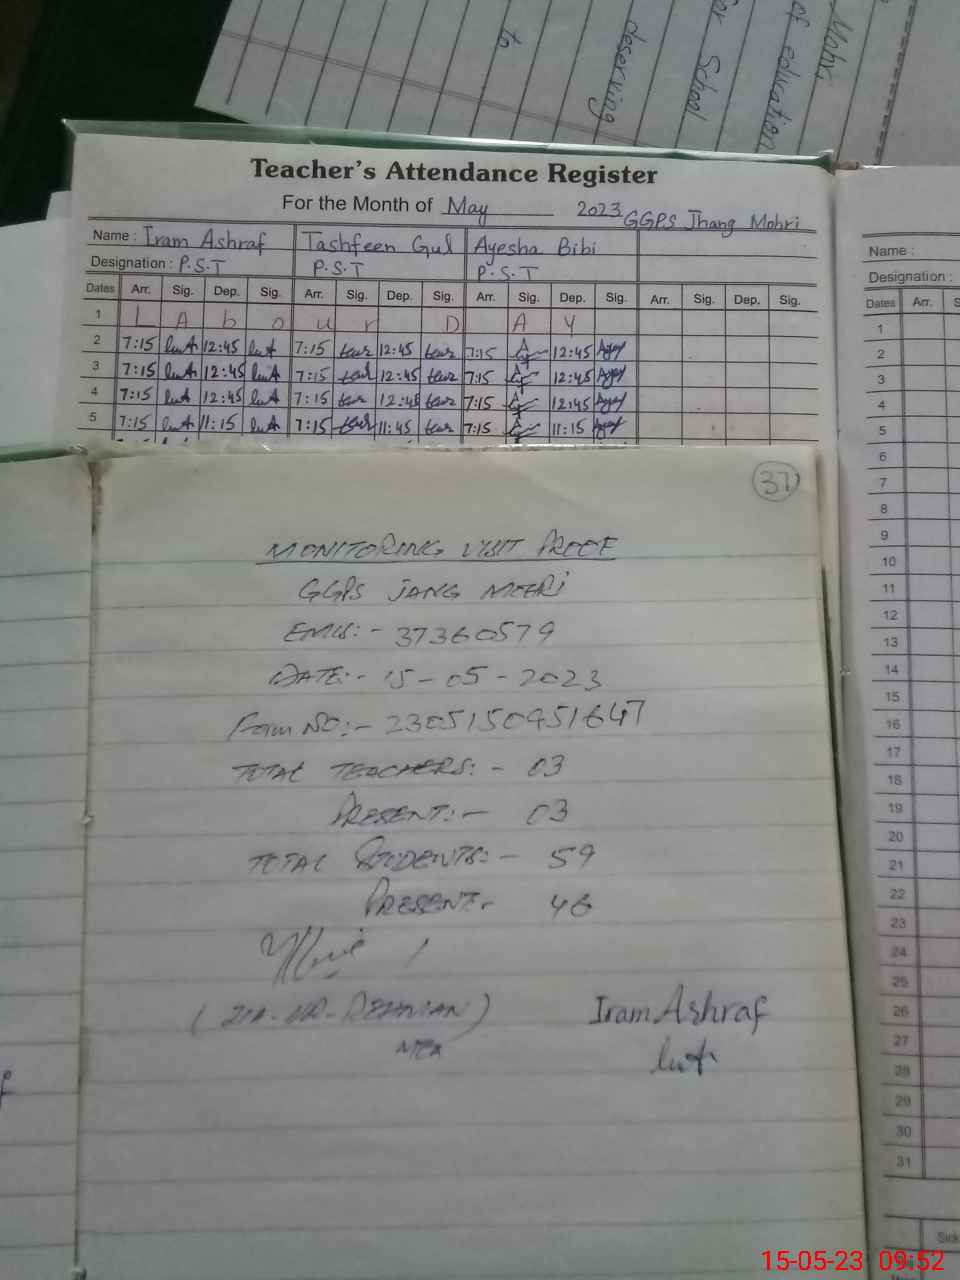 to
deserving
for School
of education
Mohri
Teacher's Attendance Register
For the Month of May 2023 GGPS Jhang Mohri
Name : Iram Ashraf Tashfeen Gul Ayesha Bibi
Designation : P.S.T P.S.T P.S.T
Dates Arr. Sig. Dep. Sig. Arr. Sig. Dep. Sig. Arr. Sig. Dep. Sig. Arr. Sig. Dep. Sig.
1 L A b o u r D A Y
2 7:15 12:45 7:15 12:45 7:15 12:45
3 7:15 12:45 7:15 12:45 7:15 12:45
4 7:15 12:45 7:15 12:45 7:15 12:45
5 7:15 11:15 7:15 11:45 7:15 11:15
Name :
Designation :
Dates Arr. S
1
2
3
4
5
6
7
8
9
10
11
12
13
14
15
16
17
18
19
20
21
22
23
24
25
26
27
28
29
30
31
Sick
37
MONITORING VISIT PROOF
GGPS JANG MOHRI
EMIS:- 37360579
DATE:- 15-05-2023
Form NO:- 2305150951647
TOTAL TEACHERS:- 03
PRESENT:- 03
TOTAL STUDENTS:- 59
PRESENT:- 46
(ZIA-UR-REHMAN)
MEA
Iram Ashraf
15-05-23 09:52